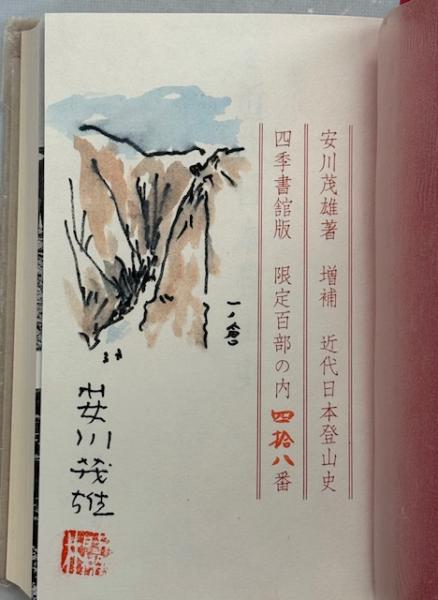 安川茂雄著 増補 近代日本登山史
四季書館版 限定百部の内 四拾八番
一ノ倉
安川茂雄